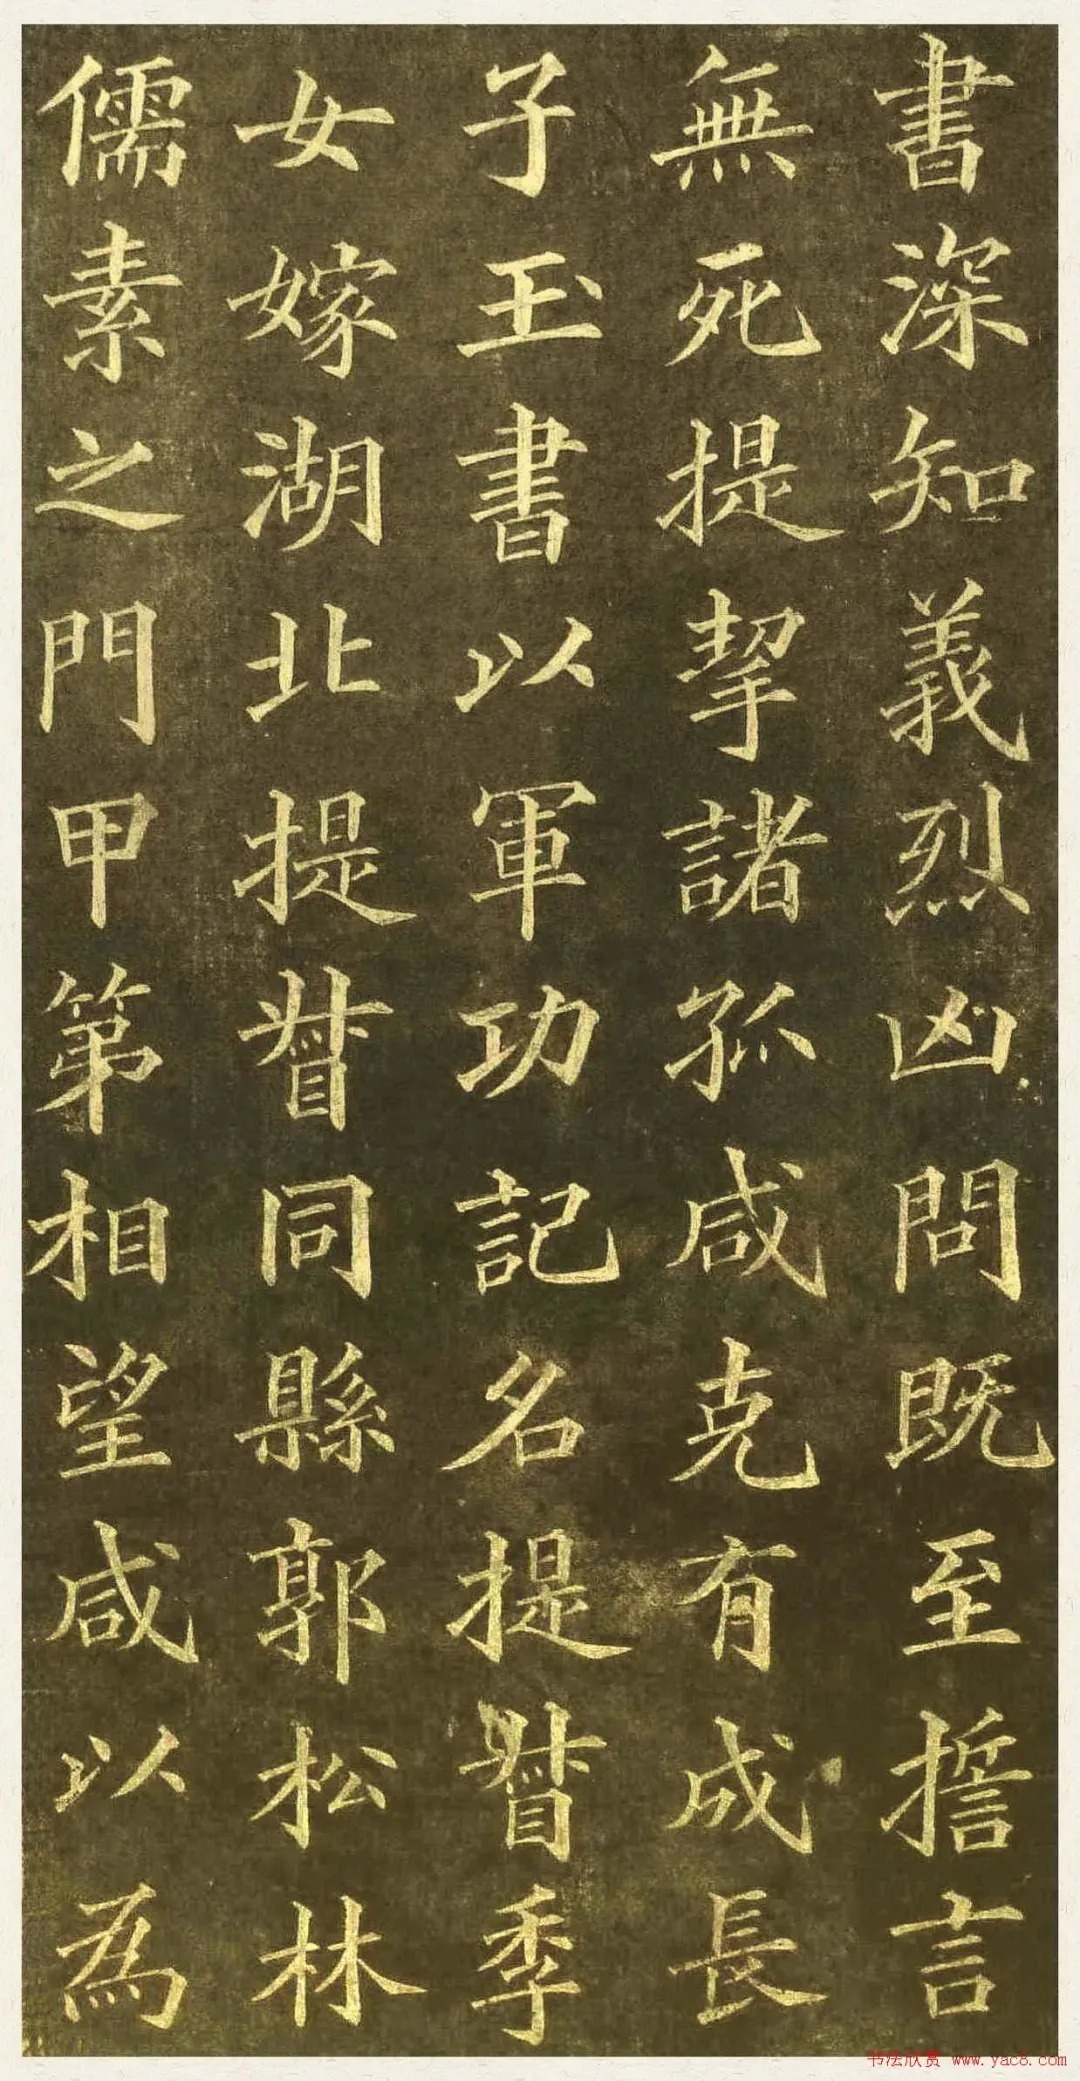 書深知義烈凶問既至擔言
無死提挈諸孤咸克有成長
子玉書以軍功記名提督季
女嫁湖北提督同縣郭松林
儒素之門甲第相望咸以為
书法欣赏 www.yac8.com